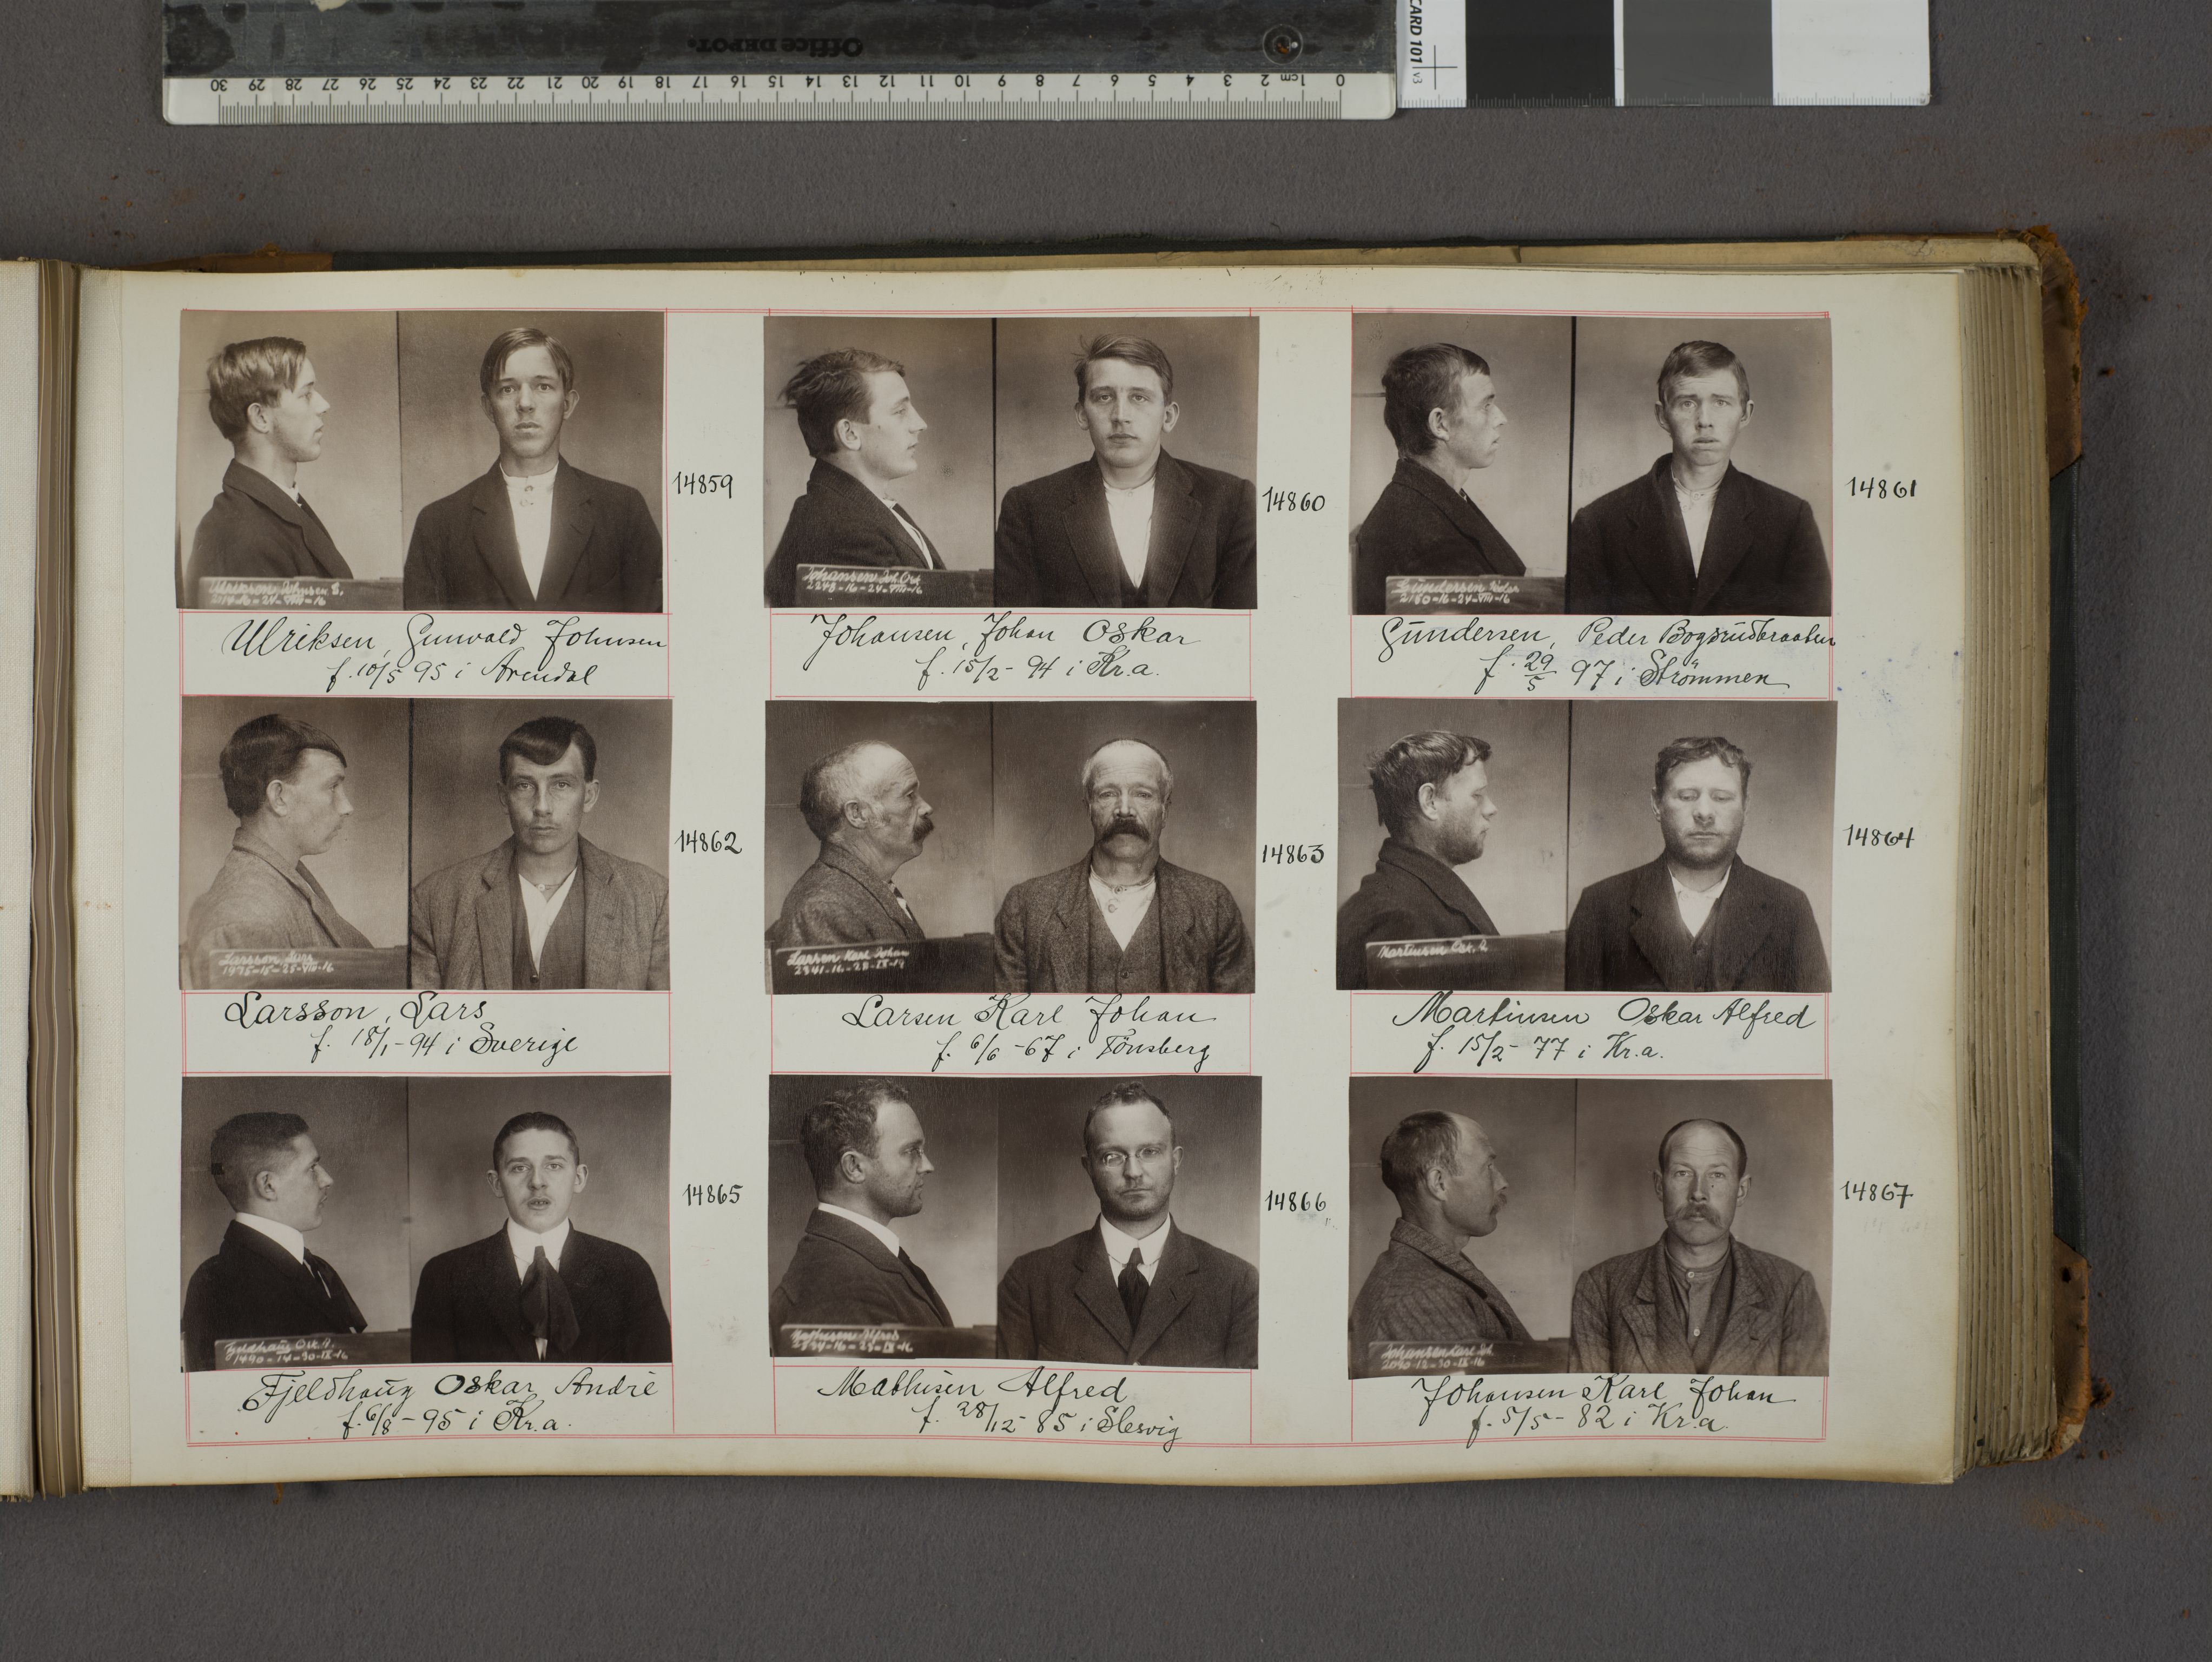 Office DEPOT.
0 1cm 2 3 4 5 6 7 8 9 10 11 12 13 14 15 16 17 18 19 20 21 22 23 24 25 26 27 28 29 30
CARD 101 v3
14859
Ulriksen, Gunvald Johnsen
f. 10/5 95 i Arendal
Johansen Joh. Osk.
2248-16-24-VIII-16
14860
Johansen, Johan Oskar
f. 15/2 - 94 i Kr.a.
Gundersen Peder
2150-16-24-VIII-16
14861
Gundersen, Peder Bogsrudbraaten
f. 29/5 97 i Strömmen
Larsson, Lars
1975-15-25-VIII-16
14862
Larsson, Lars
f. 18/1 - 94 i Sverige
Larsen Karl Johan
2341-16-28-IX-
14863
Larsen Karl Johan
f. 6/6 - 67 i Tönsberg
Martinsen Osk. A.
14864
Martinsen Oskar Alfred
f. 15/2 - 77 i Kr.a.
Fjeldhaug Osk. A.
1490-14-30-IX-16
14865
Fjeldhaug Oskar André
f. 6/8 - 95 i Kr.a.
Mathisen Alfred
14866
Mathisen Alfred
f. 28/12 - 85 i Slesvig
Johansen Karl Joh.
2090-12-30-IX-16
14867
Johansen Karl Johan
f. 5/5 - 82 i Kr.a.